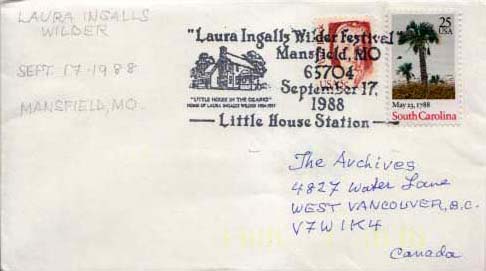 LAURA INGALLS
WILDER
SEPT. 17-1988
MANSFIELD, MO.
"Laura Ingalls Wilder Festival"
Mansfield, MO
65704
September 17,
1988
Little House Station
"LITTLE HOUSE IN THE OZARKS"
HOME OF LAURA INGALLS WILDER 1894-1957
25
USA
May 23, 1788
South Carolina
The Archives
4827 Water Lane
WEST VANCOUVER, B.C.
V7W 1K4
Canada